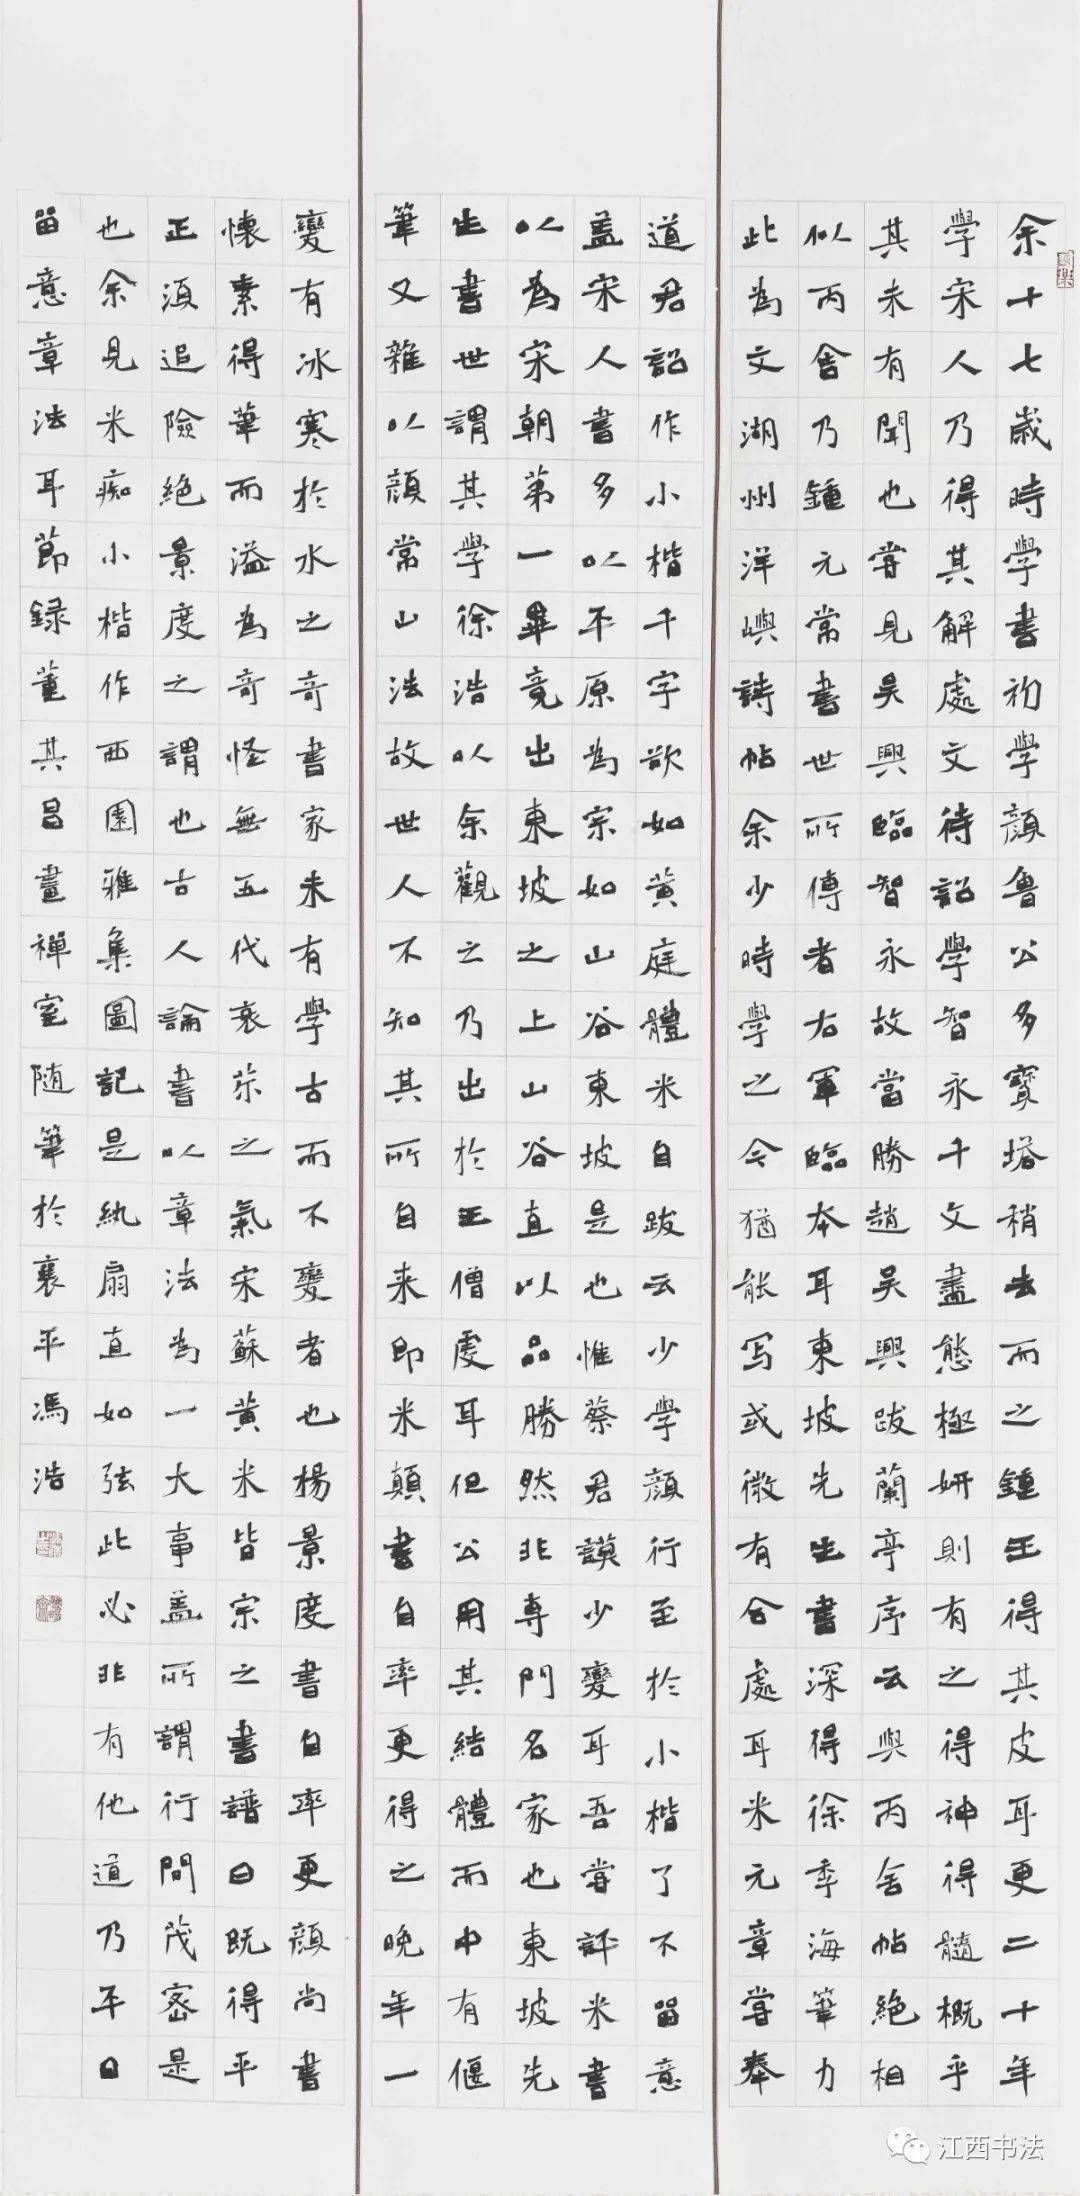 余十七歲時學書初學顏魯公多寶塔稍去而之鍾王得其皮耳更二十年
學宋人乃得其解處文待詔學智永千文盡態極妍則有之得神得髓概乎
其未有聞也嘗見吳興臨智永故當勝趙吳興跋蘭亭序云與丙舍帖絕相
似丙舍乃鍾元常書世所傳者右軍臨本耳東坡先生書深得徐季海筆力
此為文湖州洋嶼詩帖余少時學之今猶能写或微有合處耳米元章嘗奉
道君詔作小楷千字欲如黃庭體米自跋云少學顏行至於小楷了不留意
盖宋人書多以平原為宗如山谷東坡是也惟蔡君謨少變耳吾嘗評米書
以為宋朝第一畢竟出東坡之上山谷直以品勝然非專門名家也東坡先
生書世謂其學徐浩以余觀之乃出於王僧虔耳但公用其結體而中有偃
筆又雜以顏常山法故世人不知其所自来即米顛書自率更得之晚年一
變有冰寒於水之奇書家未有學古而不變者也楊景度書自率更顏尚書
懷素得筆而溢為奇怪無五代衰茶之氣宋蘇黃米皆宗之書譜曰既得平
正須追險絕景度之謂也古人論書以章法為一大事盖所謂行間茂密是
也余見米痴小楷作西園雅集圖記是紈扇直如弦此必非有他道乃平日
留意章法耳節録董其昌畫禪室随筆於襄平馮浩
江西书法